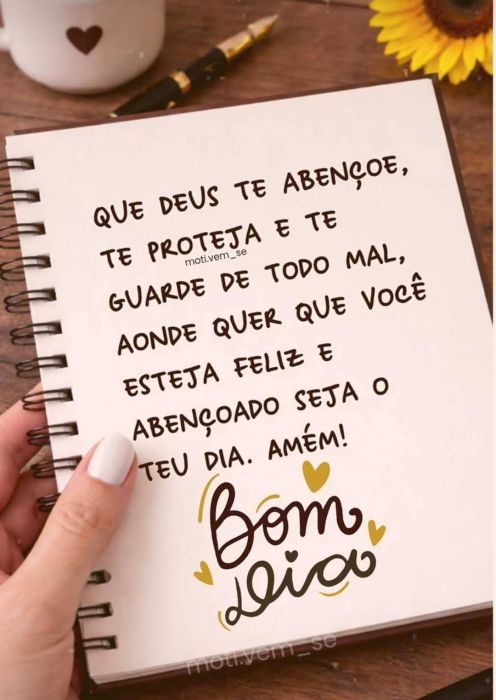 QUE DEUS TE ABENÇOE,
TE PROTEJA E TE
moti.vem_se
GUARDE DE TODO MAL,
AONDE QUER QUE VOCÊ
ESTEJA FELIZ E
ABENÇOADO SEJA O
TEU DIA. AMÉM!
Bom
Dia
moti.vem_se